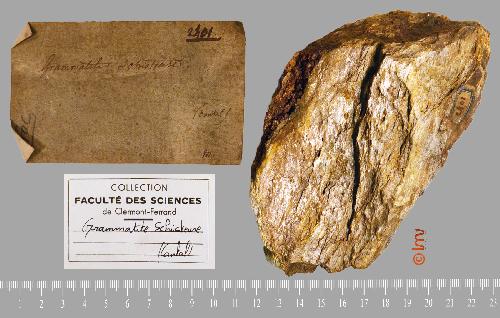 2401
Grammatite schisteuse
(Cantal)
COLLECTION
FACULTÉ DES SCIENCES
de Clermont-Ferrand
Grammatite Schisteuse
(Cantal)
© lmv
1 2 3 4 5 6 7 8 9 10 11 12 13 14 15 16 17 18 19 20 21 22 23